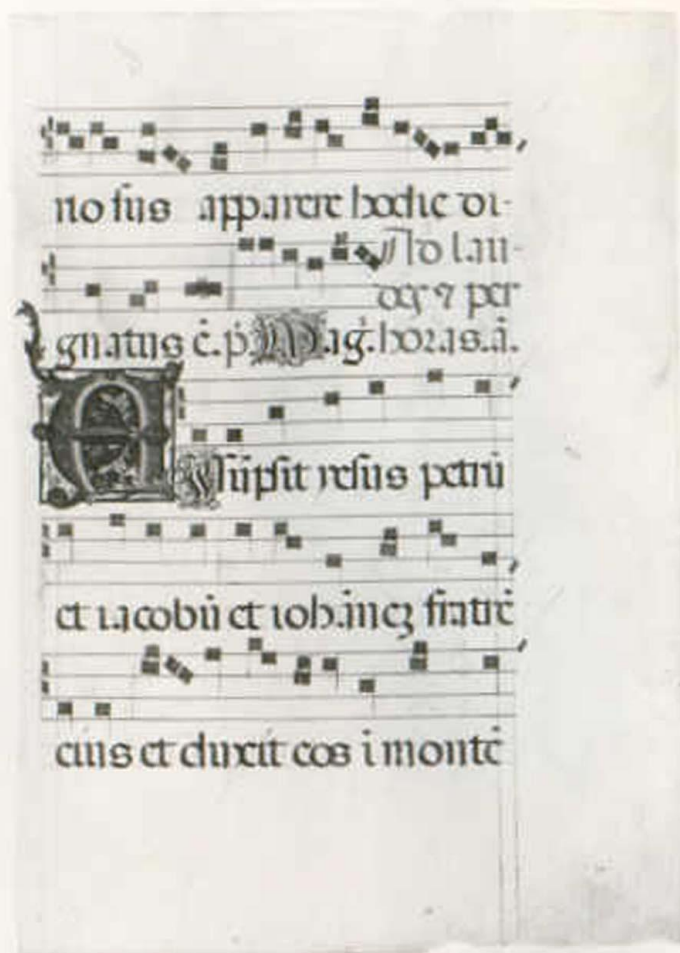 no sus apparere hodie di-
p̄s Io. lau-
gnatus ē. p̄. Mag. horas. ā.
Assūpsit iesus petrū
et iacobū et iohannē fratrē
eius et duxit eos i montē